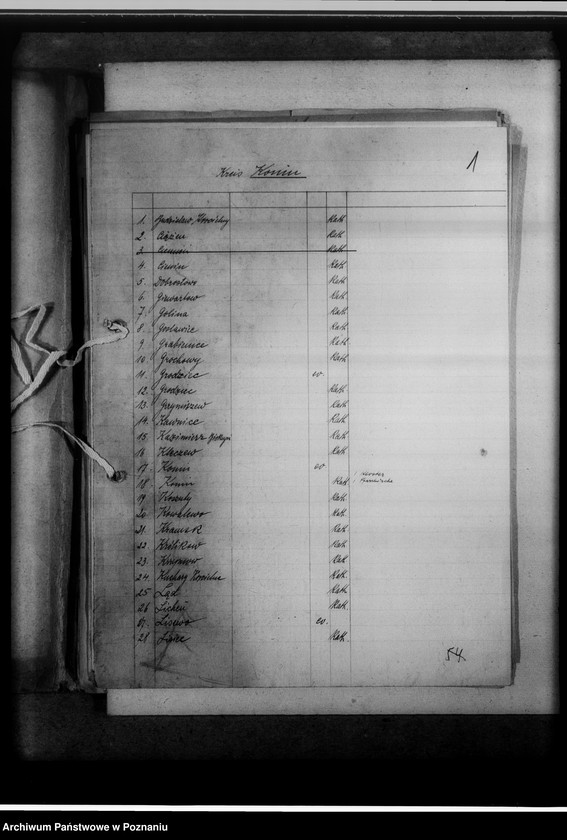 1
Kreis Konin
1. Kath.
2. Ciążeń Kath.
3. Kath.
4. Kath.
5. Dobrosłowo Kath.
6. Kath.
7. Golina Kath.
8. Gosławice Kath.
9. Grabienice Kath.
10. Grochowy Kath.
11. Grodziec ev.
12. Grodziec Kath.
13. Grzymiszew Kath.
14. Kawnice Kath.
15. Kazimierz Kath.
16 Kleczew Kath.
17. Konin ev
18. Konin Kath.
19 Kath.
20 Kowalewo Kath.
21. Kramsk Kath.
22. Królikow Kath.
23. Kath
24. Kuchary Kath.
25 Ląd Kath.
26 Licheń Kath.
27. Lisewo ev.
28 Kath.
54.
Archiwum Państwowe w Poznaniu